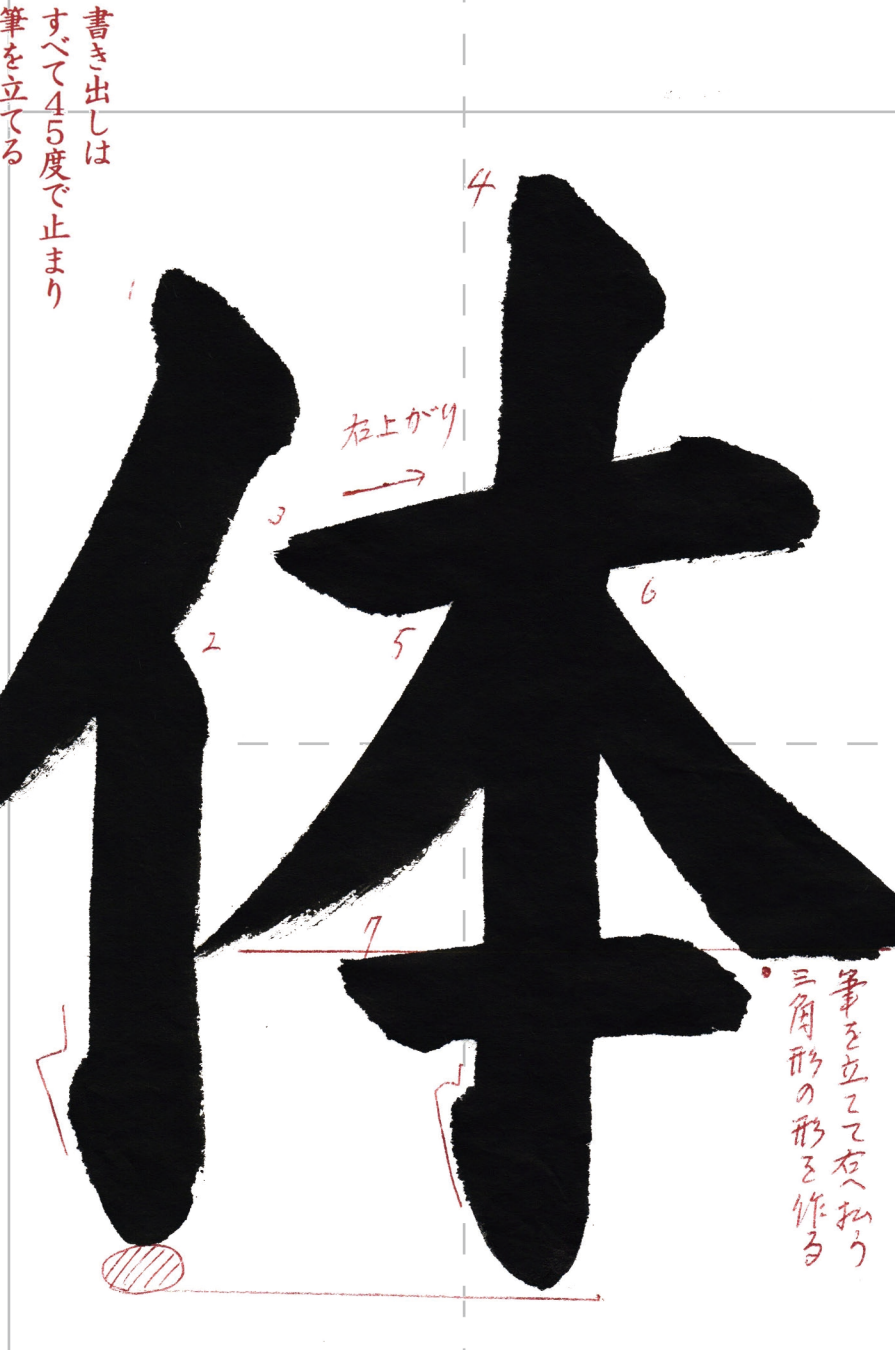 書き出しは
すべて45度で止まり
筆を立てる
体
1
2
3
4
5
6
7
右上がり
筆を立てて右へ払う
三角形の形を作る